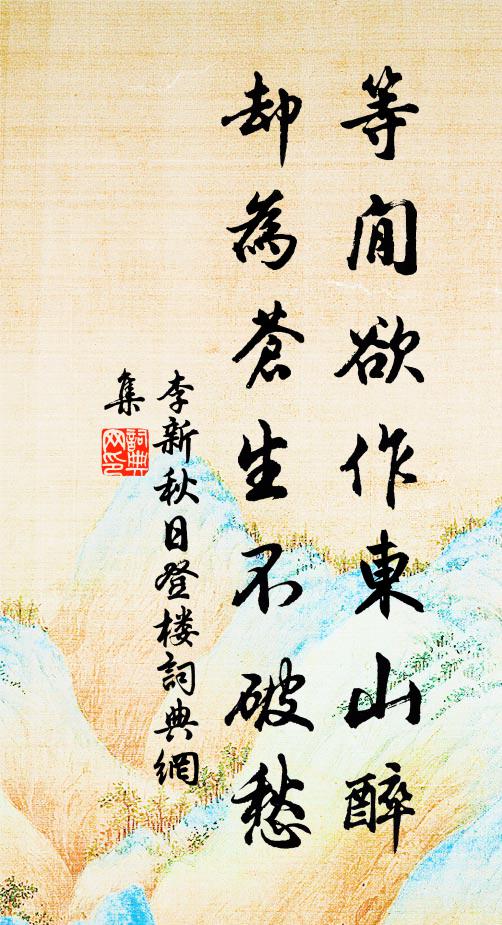 等閒欲作東山醉
却為蒼生不破愁
李新秋日登楼詞典網
集
詞典
网印